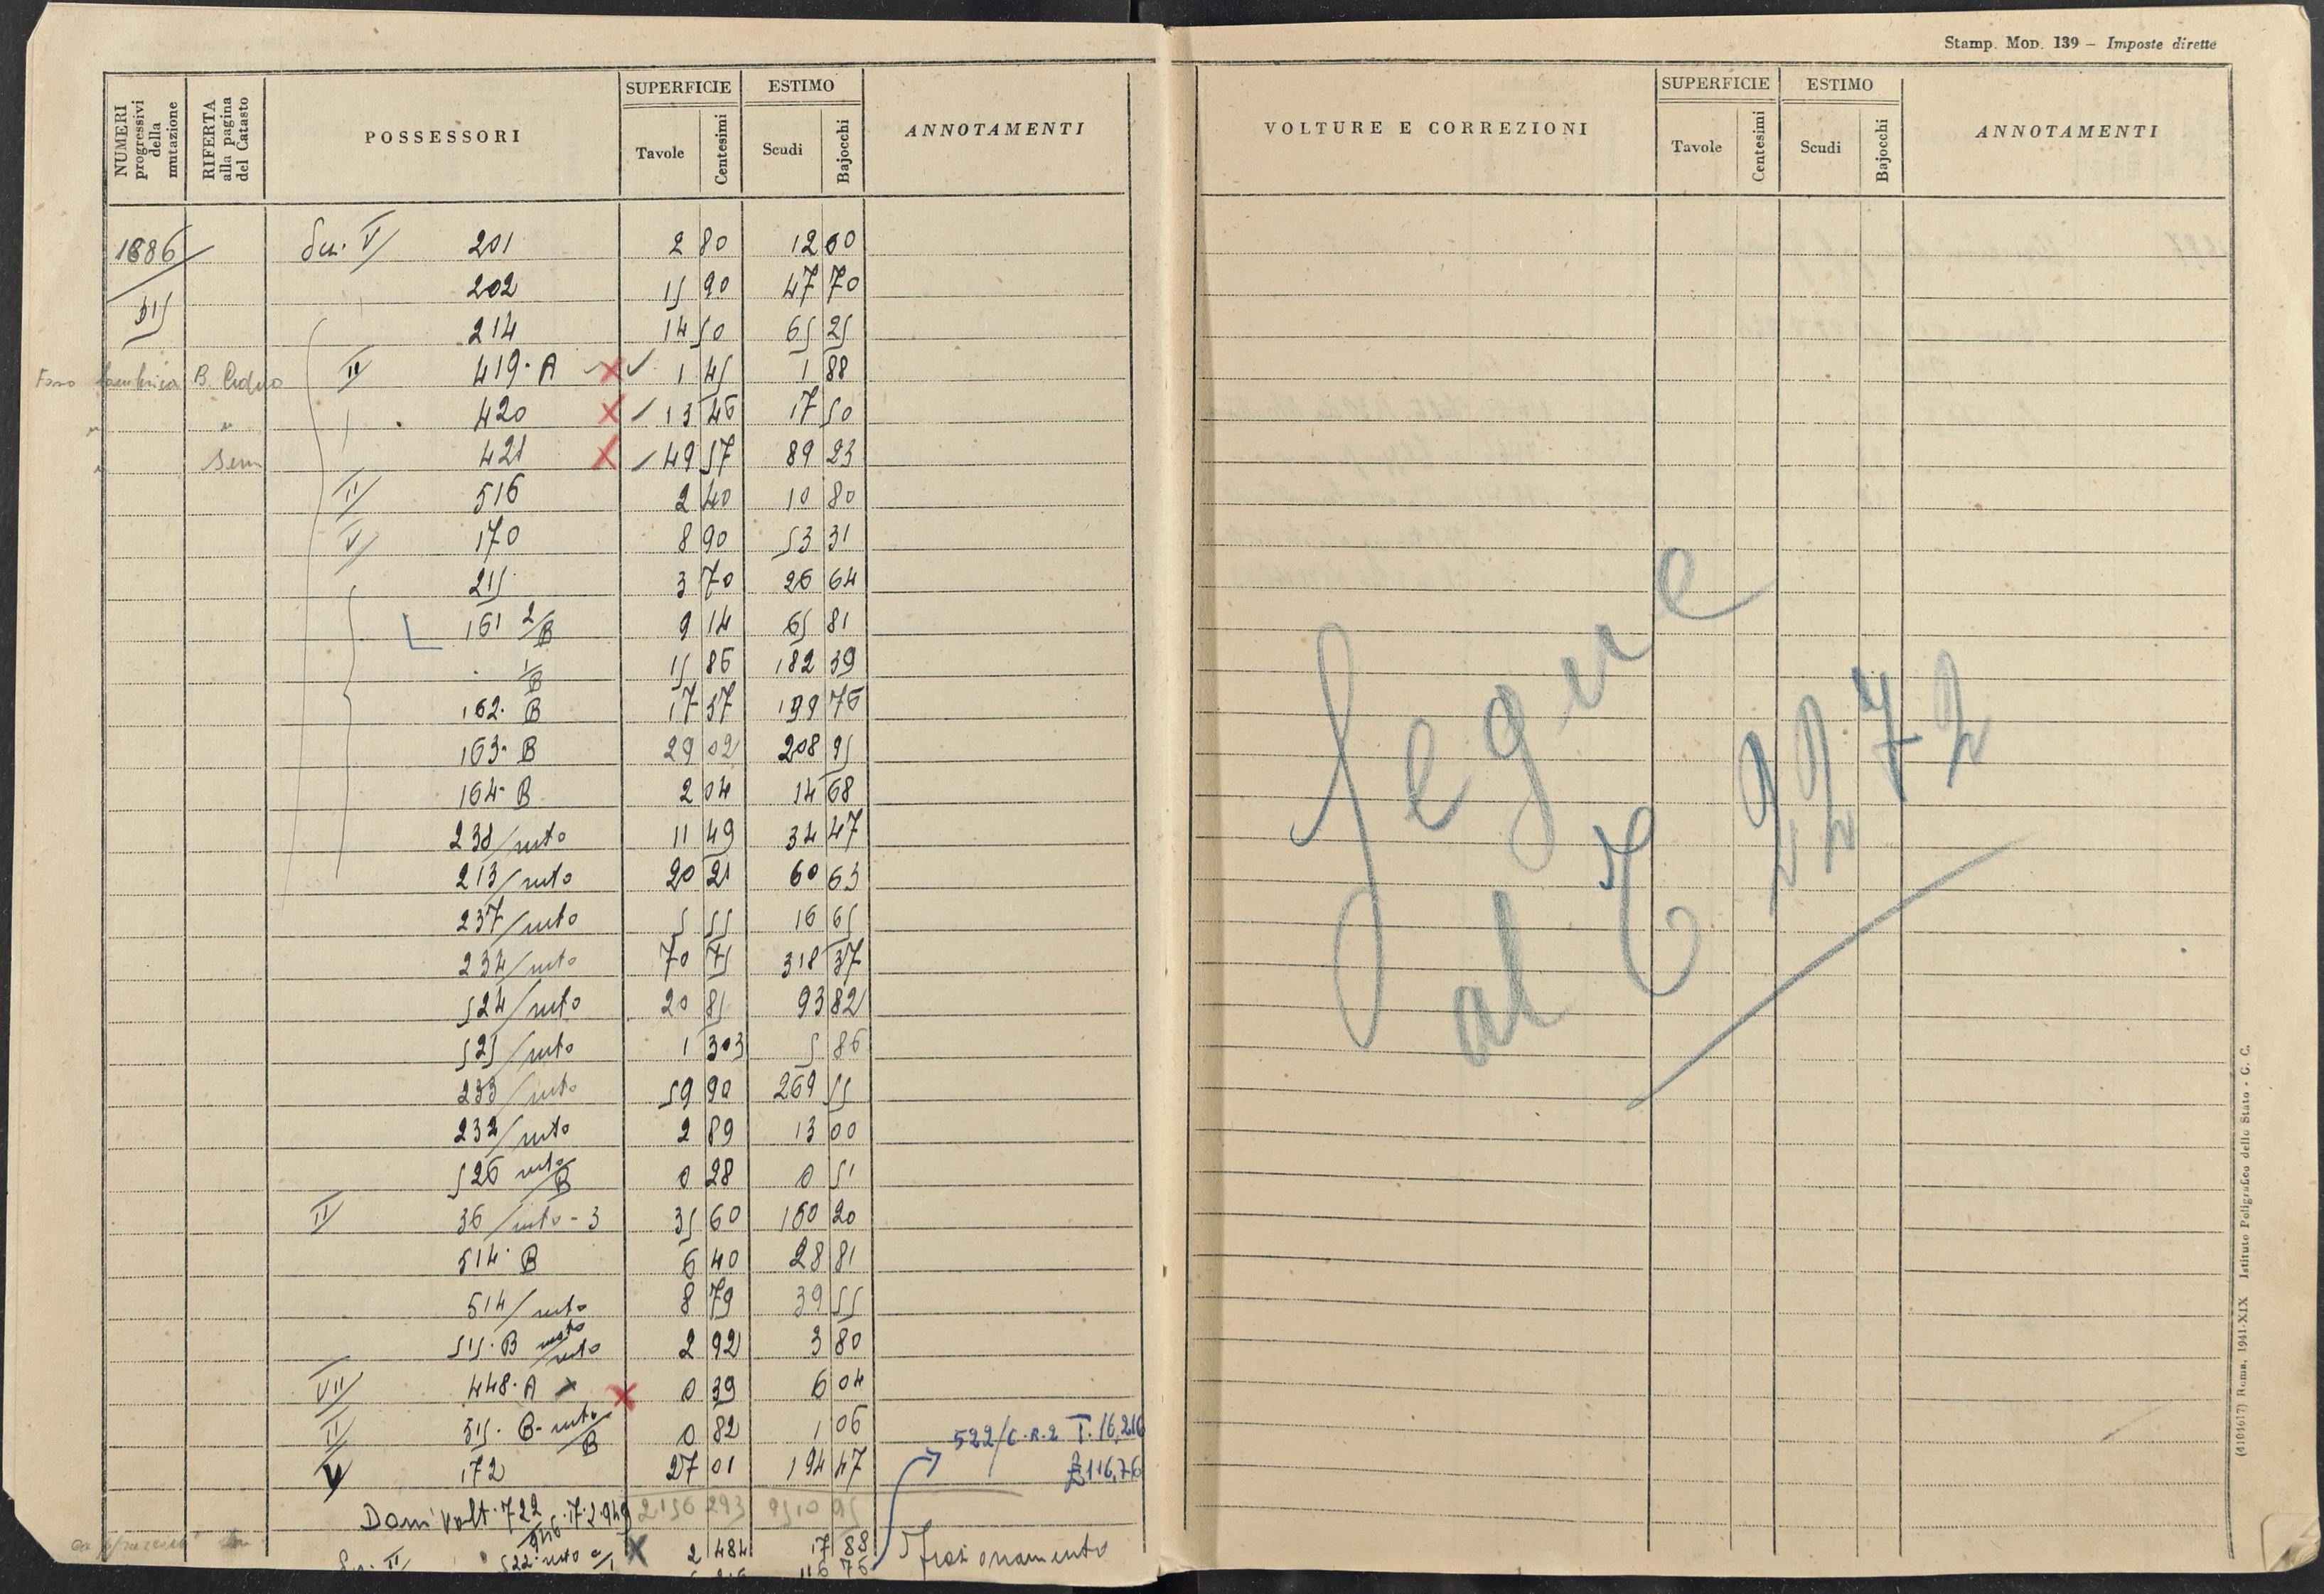 Stamp. Mod. 139 – Imposte dirette
NUMERI progressivi della mutazione
RIFERTA alla pagina del Catasto
POSSESSORI
SUPERFICIE
Tavole
Centesimi
ESTIMO
Scudi
Bajocchi
ANNOTAMENTI
VOLTURE E CORREZIONI
SUPERFICIE
Tavole
Centesimi
ESTIMO
Scudi
Bajocchi
ANNOTAMENTI
1686 V 201 2 80 12 60
202 15 90 47 70
515 214 14 50 65 25
B. II 419. A X 1 45 1 88
" " 420 X 13 46 17 50
" Sem 421 X 49 57 89 23
II 516 2 40 10 80
V 170 8 90 53 31
215 3 70 26 64
161 2/B 9 14 65 81
1/B 15 86 182 39
162. B 17 37 199 76
163. B 29 02 208 95
164. B 2 04 14 68
238/resto 11 49 34 47
213/resto 20 21 60 63
237/resto 5 55 16 65
234/resto 70 75 318 37
524/resto 20 85 93 82
525/resto 1 303 5 86
233/resto 59 90 269 55
232/resto 2 89 13 00
526 resto/B 0 28 0 51
II 36/resto-3 35 60 160 20
514. B 6 40 28 81
514/resto 8 79 39 55
515. B resto/resto 2 92 3 80
VII 448. A X 0 39 6 04
II 315. B-resto/B 0 82 1 06
V 172 27 01 194 47
522/C.R.2 T. 16,216
116,76
volt. 722 17.2.949 2156 293 9510 95
II 522 resto X 2 484 17 88 Frazionamento
116 76
Segue
al T 2272
(4104617) Roma, 1941-XIX Istituto Poligrafico dello Stato - G. C.